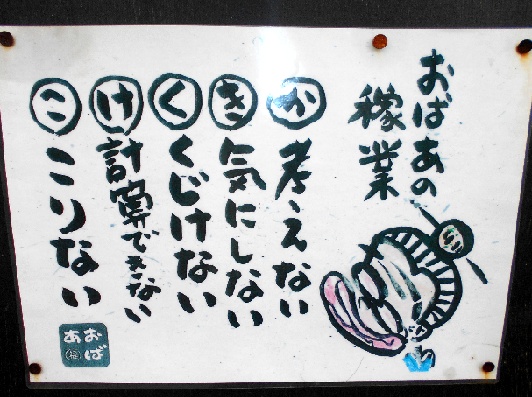 おばあの
稼業
か 考えない
き 気にしない
く くじけない
け 計算できない
こ こりない
おば
あ福